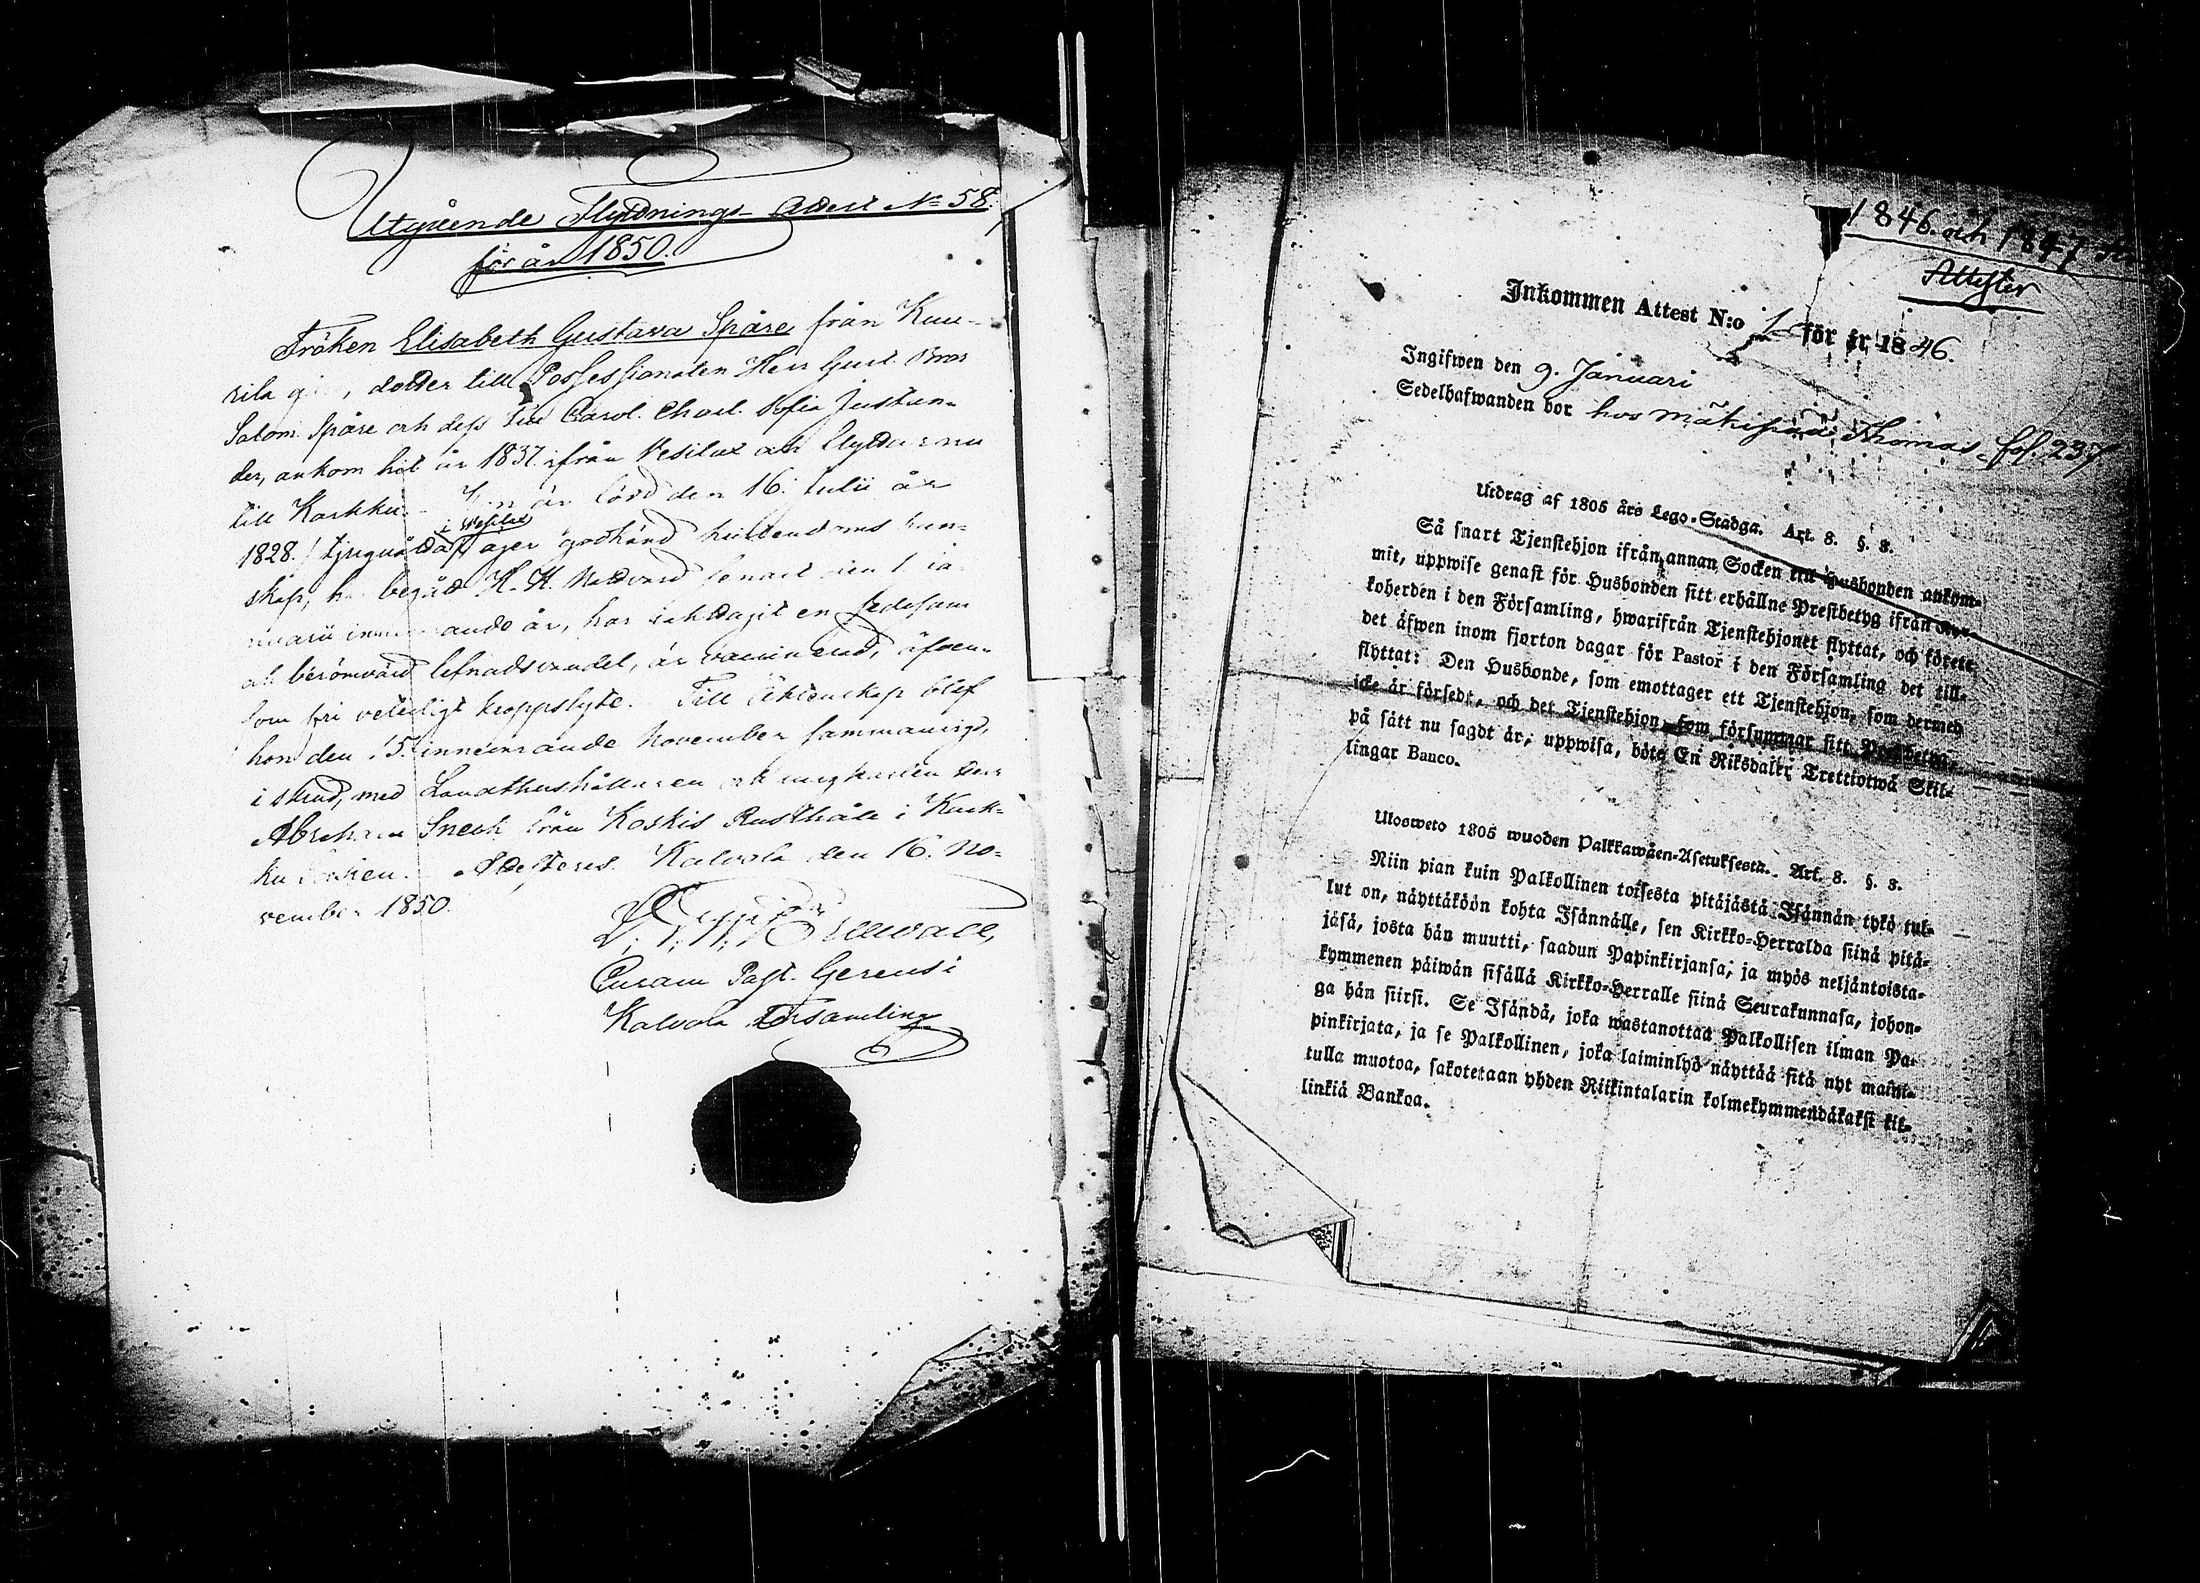 Utgående Flyttnings-Attest No 58,
för år 1850.
Fröken Elisabeth Gustava Spåre från Kuu-
rila dotter till Possessionaten Herr Gust.
Salom. Spåre och dess Fru Carol. Charl. Sofia Justan-
der, ankom hit år 1837 ifrån Vesilax och flyttar nu
till Karkku. Hon är född den 16. Julii år
i Wesilax
1828. / tjuguåtta / äger godkänd kristendoms kun-
skap, har begått H. H. Nattvard senast den 1 ja-
nuarii innevarande år, har iakttagit en sedesam
och berömvärd lefnadsvandel, är vaccinerad, äfven-
som fri veterligt kroppslyte. Till äktenskap blef
hon den 15. innevarande November sammanvigd,
i stånd, med Landthushållaren och ungkarlen Herr
Abraham Sneck från Koskis Rusthåll i Kark-
ku socken. Attesteras. Kalvola den 16. No-
vember 1850.
Curam Past. Gerens i
Kalvola Församling
1846. och 1847 års
Attester
Inkommen Attest N:o 1 för år 1846.
Ingifwen den 9. Januari
Sedelhafwanden bor hos Mäkipää Thomas fol. 237.
Utdrag af 1805 års Lego-Stadga. Art. 8. §. 8.
Så snart Tjenstehjon ifrån annan Socken till Husbonden ankom-
mit, uppwise genast för Husbonden sitt erhållne Prestbetyg ifrån Kyr-
koherden i den Församling, hwarifrån Tjenstehjonet flyttat, och förete
det äfwen inom fjorton dagar för Pastor i den Församling det till-
flyttat: Den Husbonde, som emottager ett Tjenstehjon, som dermed
icke är försedt, och det Tjenstehjon, som försummar sitt Prestbetyg,
på sätt nu sagdt är, uppwisa, böte En Riksdaler Trettiotwå Skil-
lingar Banco.
Ulosweto 1805 wuoden Palkkawäen-Asetuksesta. Art. 8. §. 8.
Niin pian kuin Palkollinen toisesta pitäjästä Isännän tykö tul-
lut on, näyttäköön kohta Isännälle, sen Kirkko-Herralda siinä pitä-
jäsä, josta hän muutti, saadun Papinkirjansa, ja myös neljäntoista-
kymmenen päiwän sisällä Kirkko-Herralle siinä Seurakunnasa, johon-
ga hän siirsi. Se Isändä, joka wastanottaa Palkollisen ilman Pa-
pinkirjata, ja se Palkollinen, joka laiminlyö näyttää sitä nyt maini-
tulla muotoa, sakotetaan yhden Riikintalarin kolmekymmendäkaksi kil-
linkiä Bankoa.